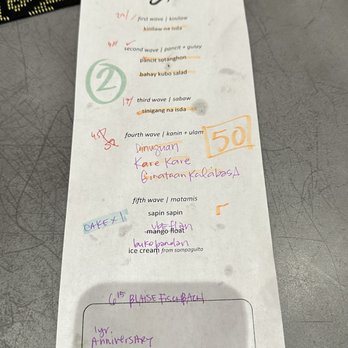 first wave | kinilaw
kinilaw na isda
second wave | pancit + gulay
pancit sotanghon
2
bahay kubo salad
third wave | sabaw
sinigang na isda
fourth wave | kanin + ulam
50
Dinuguan
Kare Kare
Ginataan Kalabasa
fifth wave | matamis
sapin sapin
CAKE x 1
leche flan
mango float
buko pandan
ice cream from sampaguita
BLAISE FISCHBACH
1yr.
ANNIVERSARY